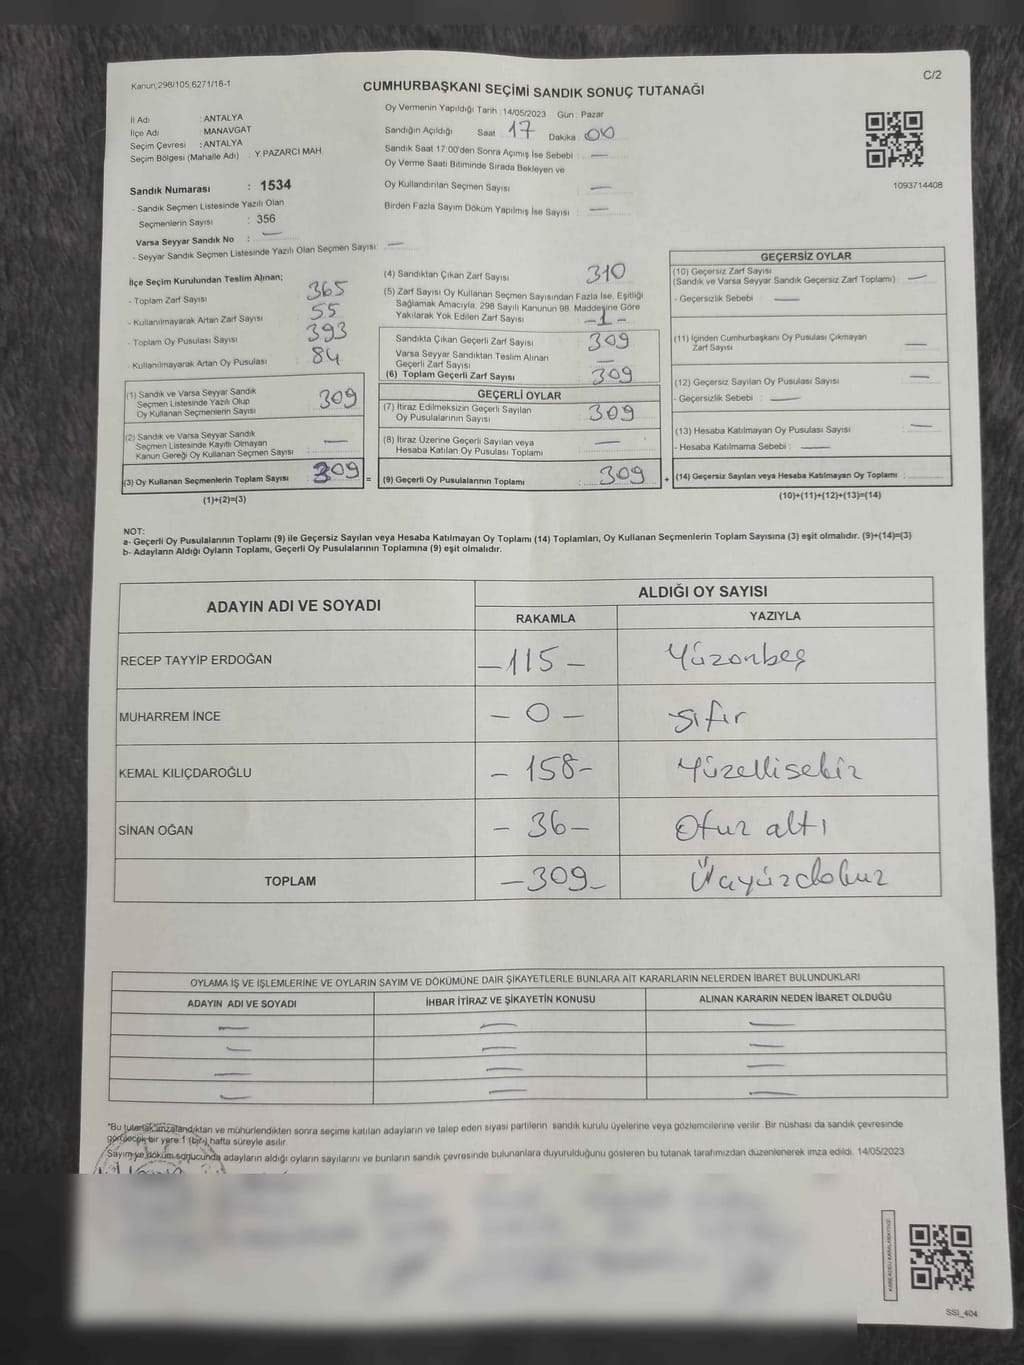 Kanun;298/105;6271/18-1
C/2
CUMHURBAŞKANI SEÇİMİ SANDIK SONUÇ TUTANAĞI
İl Adı : ANTALYA
İlçe Adı : MANAVGAT
Seçim Çevresi : ANTALYA
Seçim Bölgesi (Mahalle Adı) : Y.PAZARCI MAH.
Sandık Numarası : 1534
- Sandık Seçmen Listesinde Yazılı Olan
Seçmenlerin Sayısı : 356
Varsa Seyyar Sandık No : —
- Seyyar Sandık Seçmen Listesinde Yazılı Olan Seçmen Sayısı: —
Oy Vermenin Yapıldığı Tarih : 14/05/2023 Gün : Pazar
Sandığın Açıldığı Saat 17 Dakika 00
Sandık Saat 17:00'den Sonra Açımış İse Sebebi : —
Oy Verme Saati Bitiminde Sırada Bekleyen ve
Oy Kullandırılan Seçmen Sayısı : —
Birden Fazla Sayım Döküm Yapılmış İse Sayısı : —
1093714408
İlçe Seçim Kurulundan Teslim Alınan;
- Toplam Zarf Sayısı 365
- Kullanılmayarak Artan Zarf Sayısı 55
- Toplam Oy Pusulası Sayısı 393
- Kullanılmayarak Artan Oy Pusulası 84
(1) Sandık ve Varsa Seyyar Sandık
Seçmen Listesinde Yazılı Olup
Oy Kullanan Seçmenlerin Sayısı 309
(2) Sandık ve Varsa Seyyar Sandık
Seçmen Listesinde Kayıtlı Olmayan
Kanun Gereği Oy Kullanan Seçmen Sayısı : —
(3) Oy Kullanan Seçmenlerin Toplam Sayısı 309 =
(1)+(2)=(3)
(4) Sandıktan Çıkan Zarf Sayısı 310
(5) Zarf Sayısı Oy Kullanan Seçmen Sayısından Fazla İse, Eşitliği
Sağlamak Amacıyla, 298 Sayılı Kanunun 98. Maddesine Göre
Yakılarak Yok Edilen Zarf Sayısı -1-
Sandıkta Çıkan Geçerli Zarf Sayısı 309
Varsa Seyyar Sandıktan Teslim Alınan
Geçerli Zarf Sayısı —
(6) Toplam Geçerli Zarf Sayısı 309
GEÇERLİ OYLAR
(7) İtiraz Edilmeksizin Geçerli Sayılan
Oy Pusulalarının Sayısı 309
(8) İtiraz Üzerine Geçerli Sayılan veya
Hesaba Katılan Oy Pusulası Toplamı —
(9) Geçerli Oy Pusulalarının Toplamı 309 +
GEÇERSİZ OYLAR
(10) Geçersiz Zarf Sayısı
(Sandık ve Varsa Seyyar Sandık Geçersiz Zarf Toplamı) : —
- Geçersizlik Sebebi : —
(11) İçinden Cumhurbaşkanı Oy Pusulası Çıkmayan
Zarf Sayısı —
(12) Geçersiz Sayılan Oy Pusulası Sayısı —
- Geçersizlik Sebebi : —
(13) Hesaba Katılmayan Oy Pusulası Sayısı —
- Hesaba Katılmama Sebebi : —
(14) Geçersiz Sayılan veya Hesaba Katılmayan Oy Toplamı :
(10)+(11)+(12)+(13)=(14)
NOT:
a- Geçerli Oy Pusulalarının Toplamı (9) ile Geçersiz Sayılan veya Hesaba Katılmayan Oy Toplamı (14) Toplamları, Oy Kullanan Seçmenlerin Toplam Sayısına (3) eşit olmalıdır. (9)+(14)=(3)
b- Adayların Aldığı Oyların Toplamı, Geçerli Oy Pusulalarının Toplamına (9) eşit olmalıdır.
ADAYIN ADI VE SOYADI ALDIĞI OY SAYISI
RAKAMLA YAZIYLA
RECEP TAYYİP ERDOĞAN -115- Yüzonbeş
MUHARREM İNCE - 0 - sıfır
KEMAL KILIÇDAROĞLU - 158- Yüzellisekiz
SİNAN OĞAN - 36- Otuz altı
TOPLAM -309- Üçyüzdokuz
OYLAMA İŞ VE İŞLEMLERİNE VE OYLARIN SAYIM VE DÖKÜMÜNE DAİR ŞİKAYETLERLE BUNLARA AİT KARARLARIN NELERDEN İBARET BULUNDUKLARI
ADAYIN ADI VE SOYADI İHBAR İTİRAZ VE ŞİKAYETİN KONUSU ALINAN KARARIN NEDEN İBARET OLDUĞU
— — —
— — —
— — —
— — —
"Bu tutanak imzalandıktan ve mühürlendikten sonra seçime katılan adayların ve talep eden siyasi partilerin sandık kurulu üyelerine veya gözlemcilerine verilir. Bir nüshası da sandık çevresinde
görülecek bir yere 1 (bir) hafta süreyle asılır.
Sayım ve döküm sonucunda adayların aldığı oyların sayılarını ve bunların sandık çevresinde bulunanlara duyurulduğunu gösteren bu tutanak tarafımızdan düzenlenerek imza edildi. 14/05/2023
SSI_404